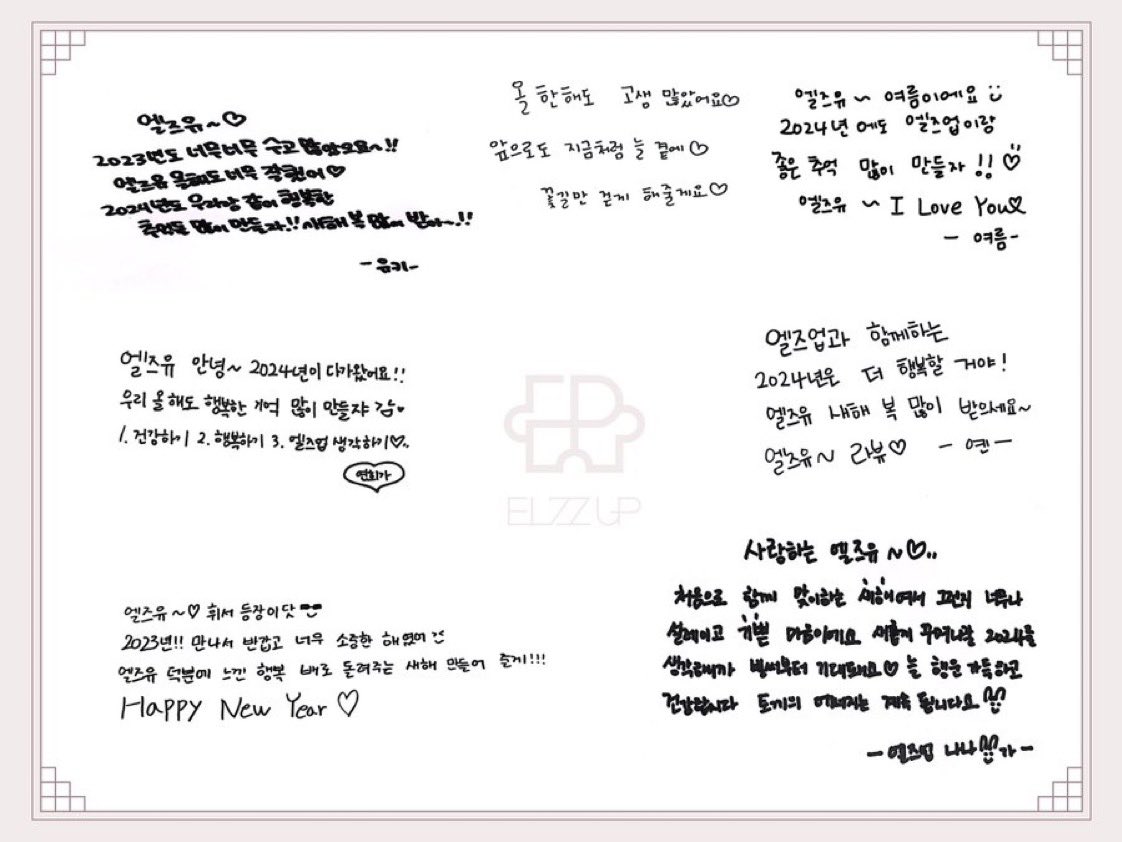 엘즈유~♡
2023년도 너무너무 수고 많았으요~!!
엘즈업 올해도 너무 잘했어♡
2024년도 우리랑 같이 행복한
추억들 많이 만들자!! 새해 복 많이 받아~!!
-유키-
올 한해도 고생 많았어요♡
앞으로도 지금처럼 늘 곁에♡
꽃길만 걷게 해줄게요♡
엘즈유 ~ 여름이에요
2024년 에도 엘즈업이랑
좋은 추억 많이 만들자!!♡
엘즈유 ~ I Love You♡
- 여름-
엘즈유 안녕~ 2024년이 다가왔어요!!
우리 올해도 행복한 기억 많이 만들쟈
1. 건강하기 2. 행복하기 3. 엘즈업 생각하기♡..
연희가
엘즈업과 함께하는
2024년은 더 행복할 거야!
엘즈유 새해 복 많이 받으세요~
엘즈유~ 라뷰♡ - 옌-
ELZZUP
엘즈유~♡ 휘서 등장이닷
2023년!! 만나서 반갑고 너무 소중한 해였어
엘즈유 덕분에 느낀 행복 배로 돌려주는 새해 만들어 줄게!!!
HAPPY New Year ♡
사랑하는 엘즈유~♡..
처음으로 함께 맞이하는 새해여서 그런지 너무나
설레이고 기쁜 마음이에요 새롭게 꾸며나갈 2024를
생각하니까 벌써부터 기대돼요♡ 늘 행운 가득하고
건강합시다 토끼의 에너지는 계속 됩니다요
-엘즈업 나나가-